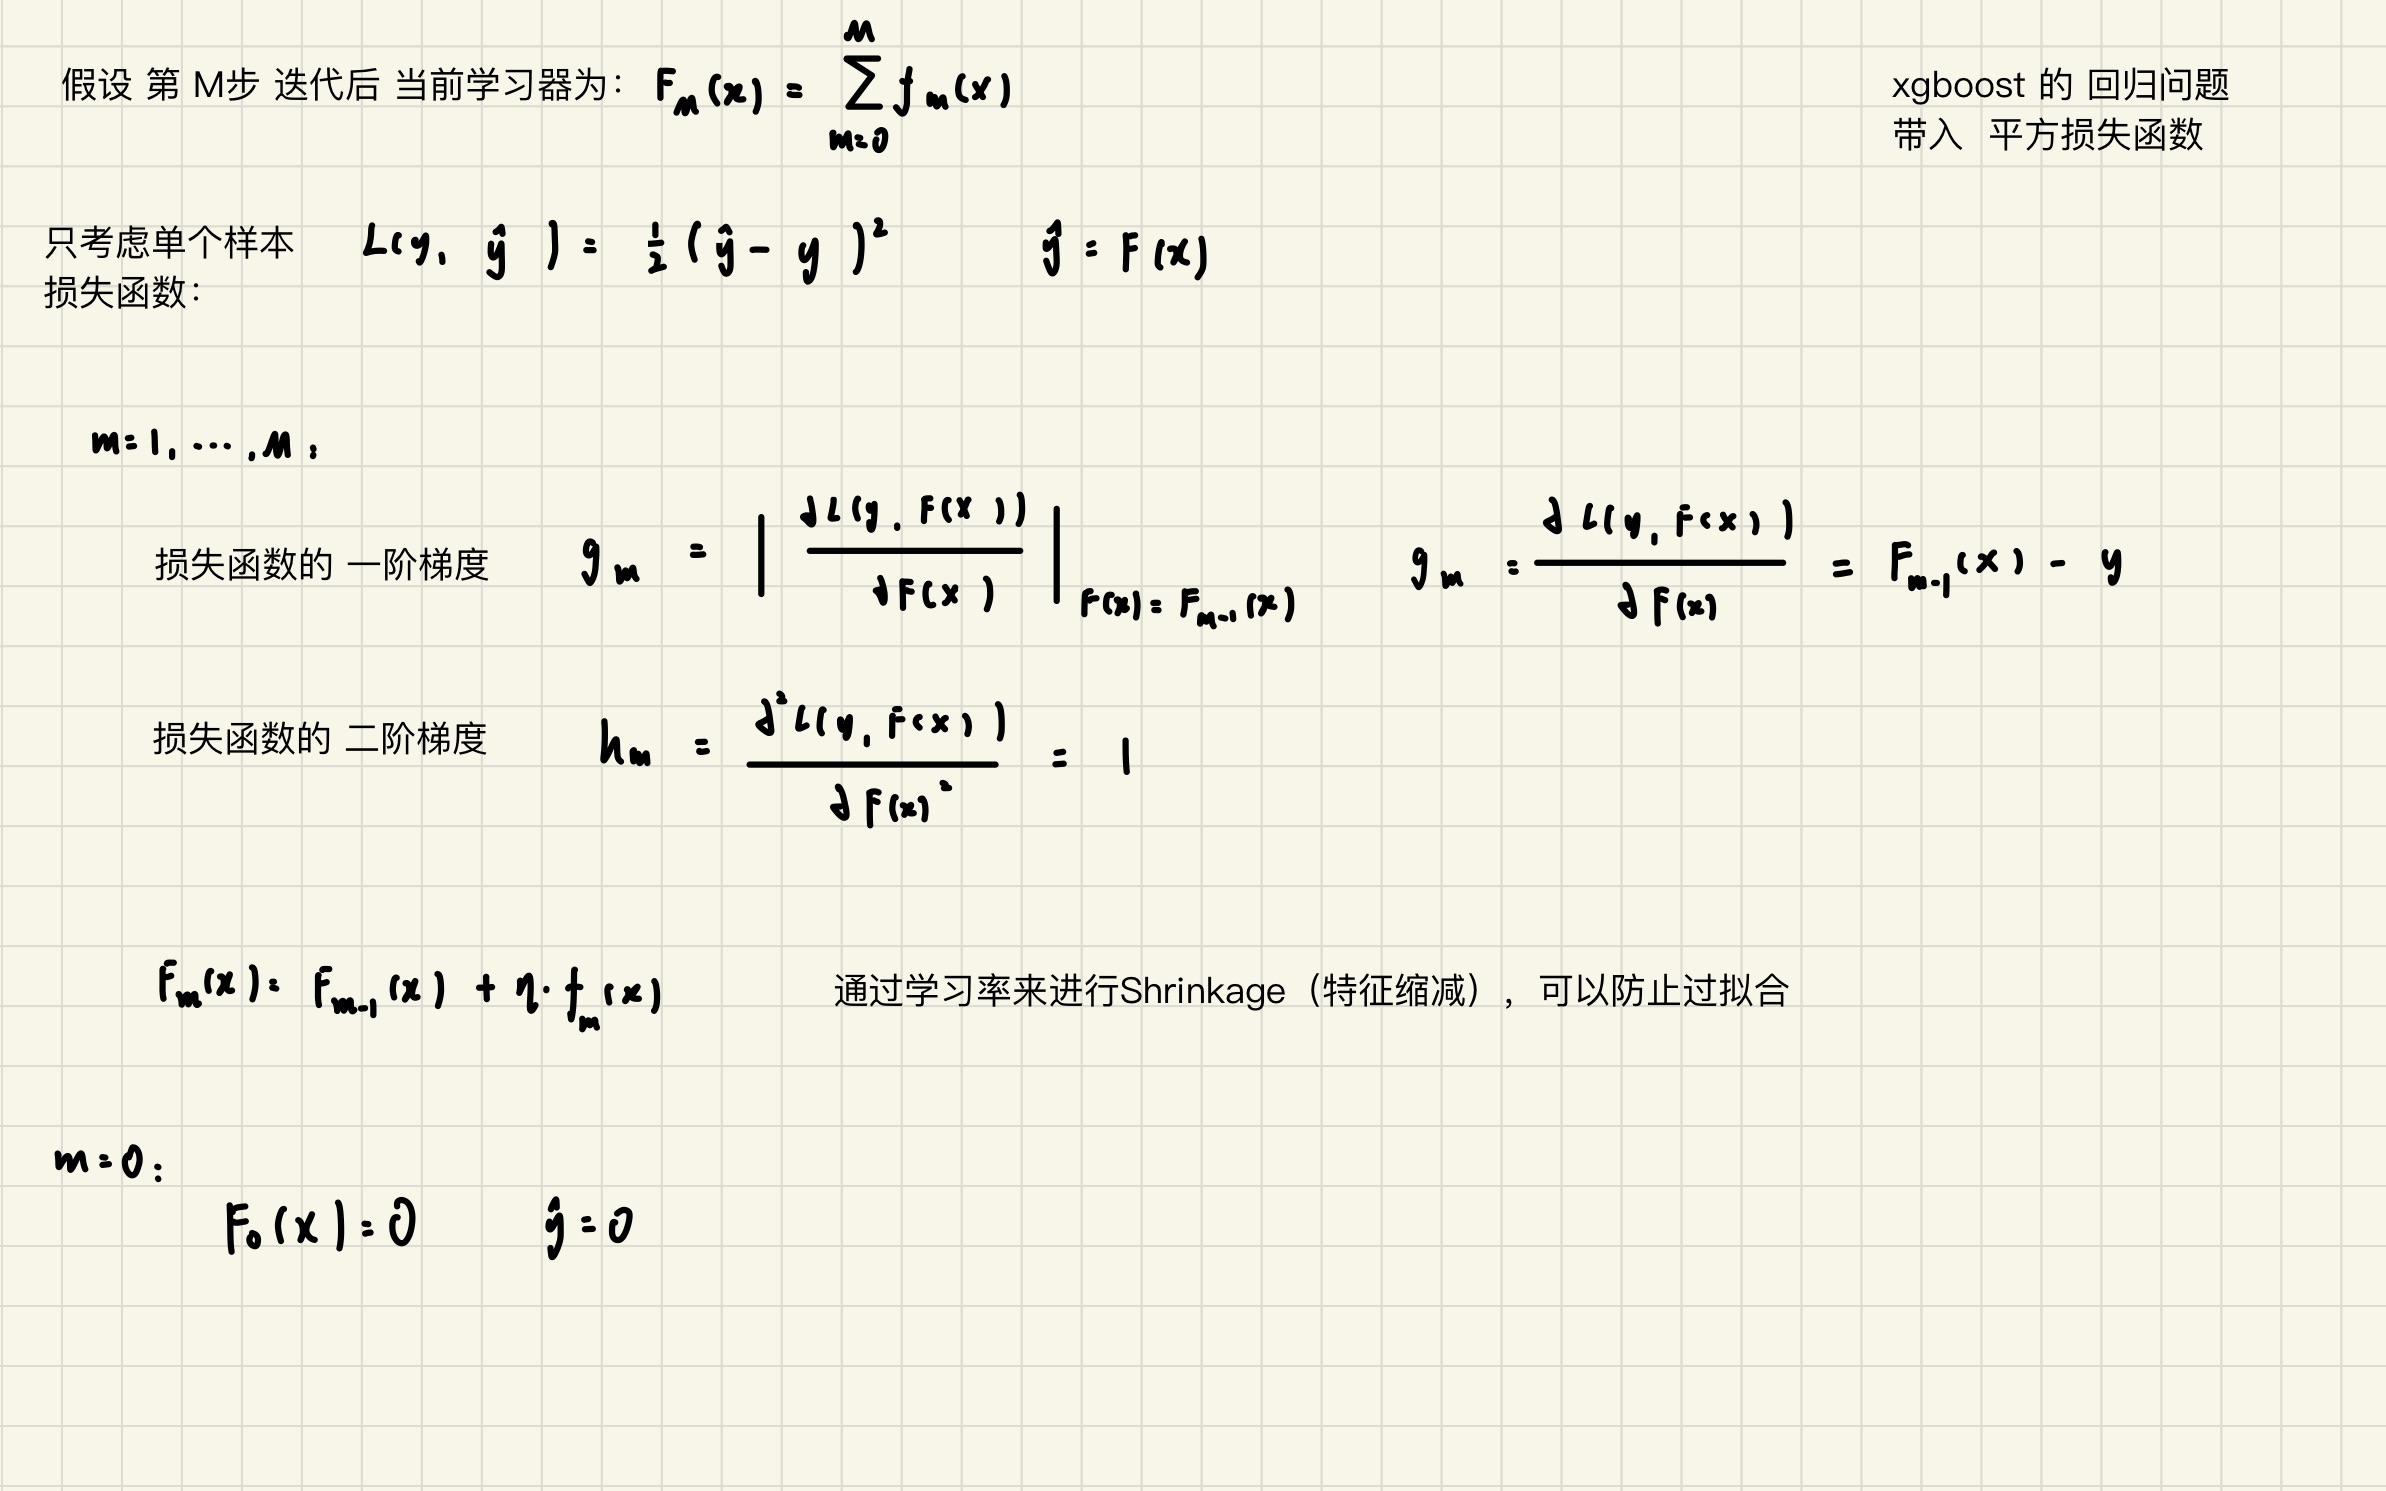 假设 第 M步 迭代后 当前学习器为： F_M(x) = \sum_{m=0}^{M} f_m(x)
xgboost 的 回归问题
带入 平方损失函数
只考虑单个样本
损失函数： L(y, ŷ) = 1/2 (ŷ - y)² ŷ = F(x)
m=1, ⋯, M:
损失函数的 一阶梯度 g_m = | ∂L(y, F(x)) / ∂F(x) |_{F(x) = F_{m-1}(x)} g_m = ∂L(y, F(x)) / ∂F(x) = F_{m-1}(x) - y
损失函数的 二阶梯度 h_m = ∂²L(y, F(x)) / ∂F(x)² = 1
F_m(x) = F_{m-1}(x) + η · f_m(x) 通过学习率来进行Shrinkage（特征缩减），可以防止过拟合
m=0:
F_0(x) = 0 ŷ = 0